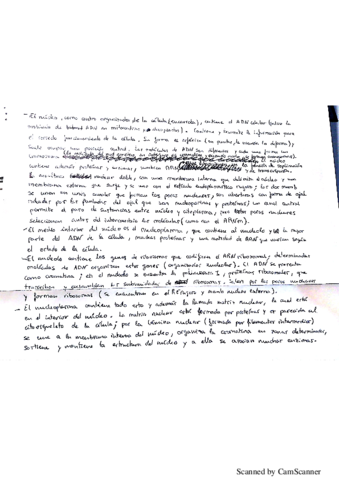 - El núcleo, como centro organizador de la célula (eucariota), contiene el ADN celular (salvo la
de ADN en mitocondrias y cloroplastos). Contiene y transmite la información para
el correcto funcionamiento de la célula. Su forma es esférica (se puede
Suele ocupar una posición central. Las moléculas de ADN son diferentes y cada una forma un
cromosoma
contiene además proteínas y enzimas, y también ARN
la membrana nuclear doble, con una membrana interna que delimita el núcleo y una
membrana externa que surge y se une con el retículo endoplasmático rugoso; las dos memb.
se unen en unos anillos que forman los poros nucleares, son aberturas con forma de
rodeadas por las del que son nucleoporinas y proteínas; un canal central
permite el paso de sustancias entre núcleo y citoplasma, por tanto poros nucleares
seleccionan antes del intercambio las moléculas (como con el ARNm).
- El medio interior del núcleo es el nucleoplasma, que contiene al nucleolo y a la mayor
parte del ADN de la célula, muchas proteínas y una cantidad de ARN que varían según
el estado de la célula.
- El nucleolo contiene los genes de ribosomas que codifican el ARN ribosomal, y determinadas
moléculas de ADN organizan estos genes (organizador nucleolar). El ADN se presenta
como cromatina; en el nucleolo se encuentra la polimerasa I, proteínas ribosomales, que
transcriben y ensamblan las subunidades de ribosomas. Salen por los poros nucleares
y forman ribosomas (se encuentran en el RE rugoso y memb nuclear externa).
- El nucleoplasma contiene todo esto y además la llamada matriz nuclear, la cual está
en el interior del núcleo. La matriz nuclear está formada por proteínas y es parecida al
citoesqueleto de la célula; por la lámina nuclear (formada por filamentos intermedios)
se une a la membrana interna del núcleo, organiza la cromatina en zonas determinadas,
sostiene y mantiene la estructura del núcleo y a ella se asocian muchas enzimas.
Scanned by CamScanner